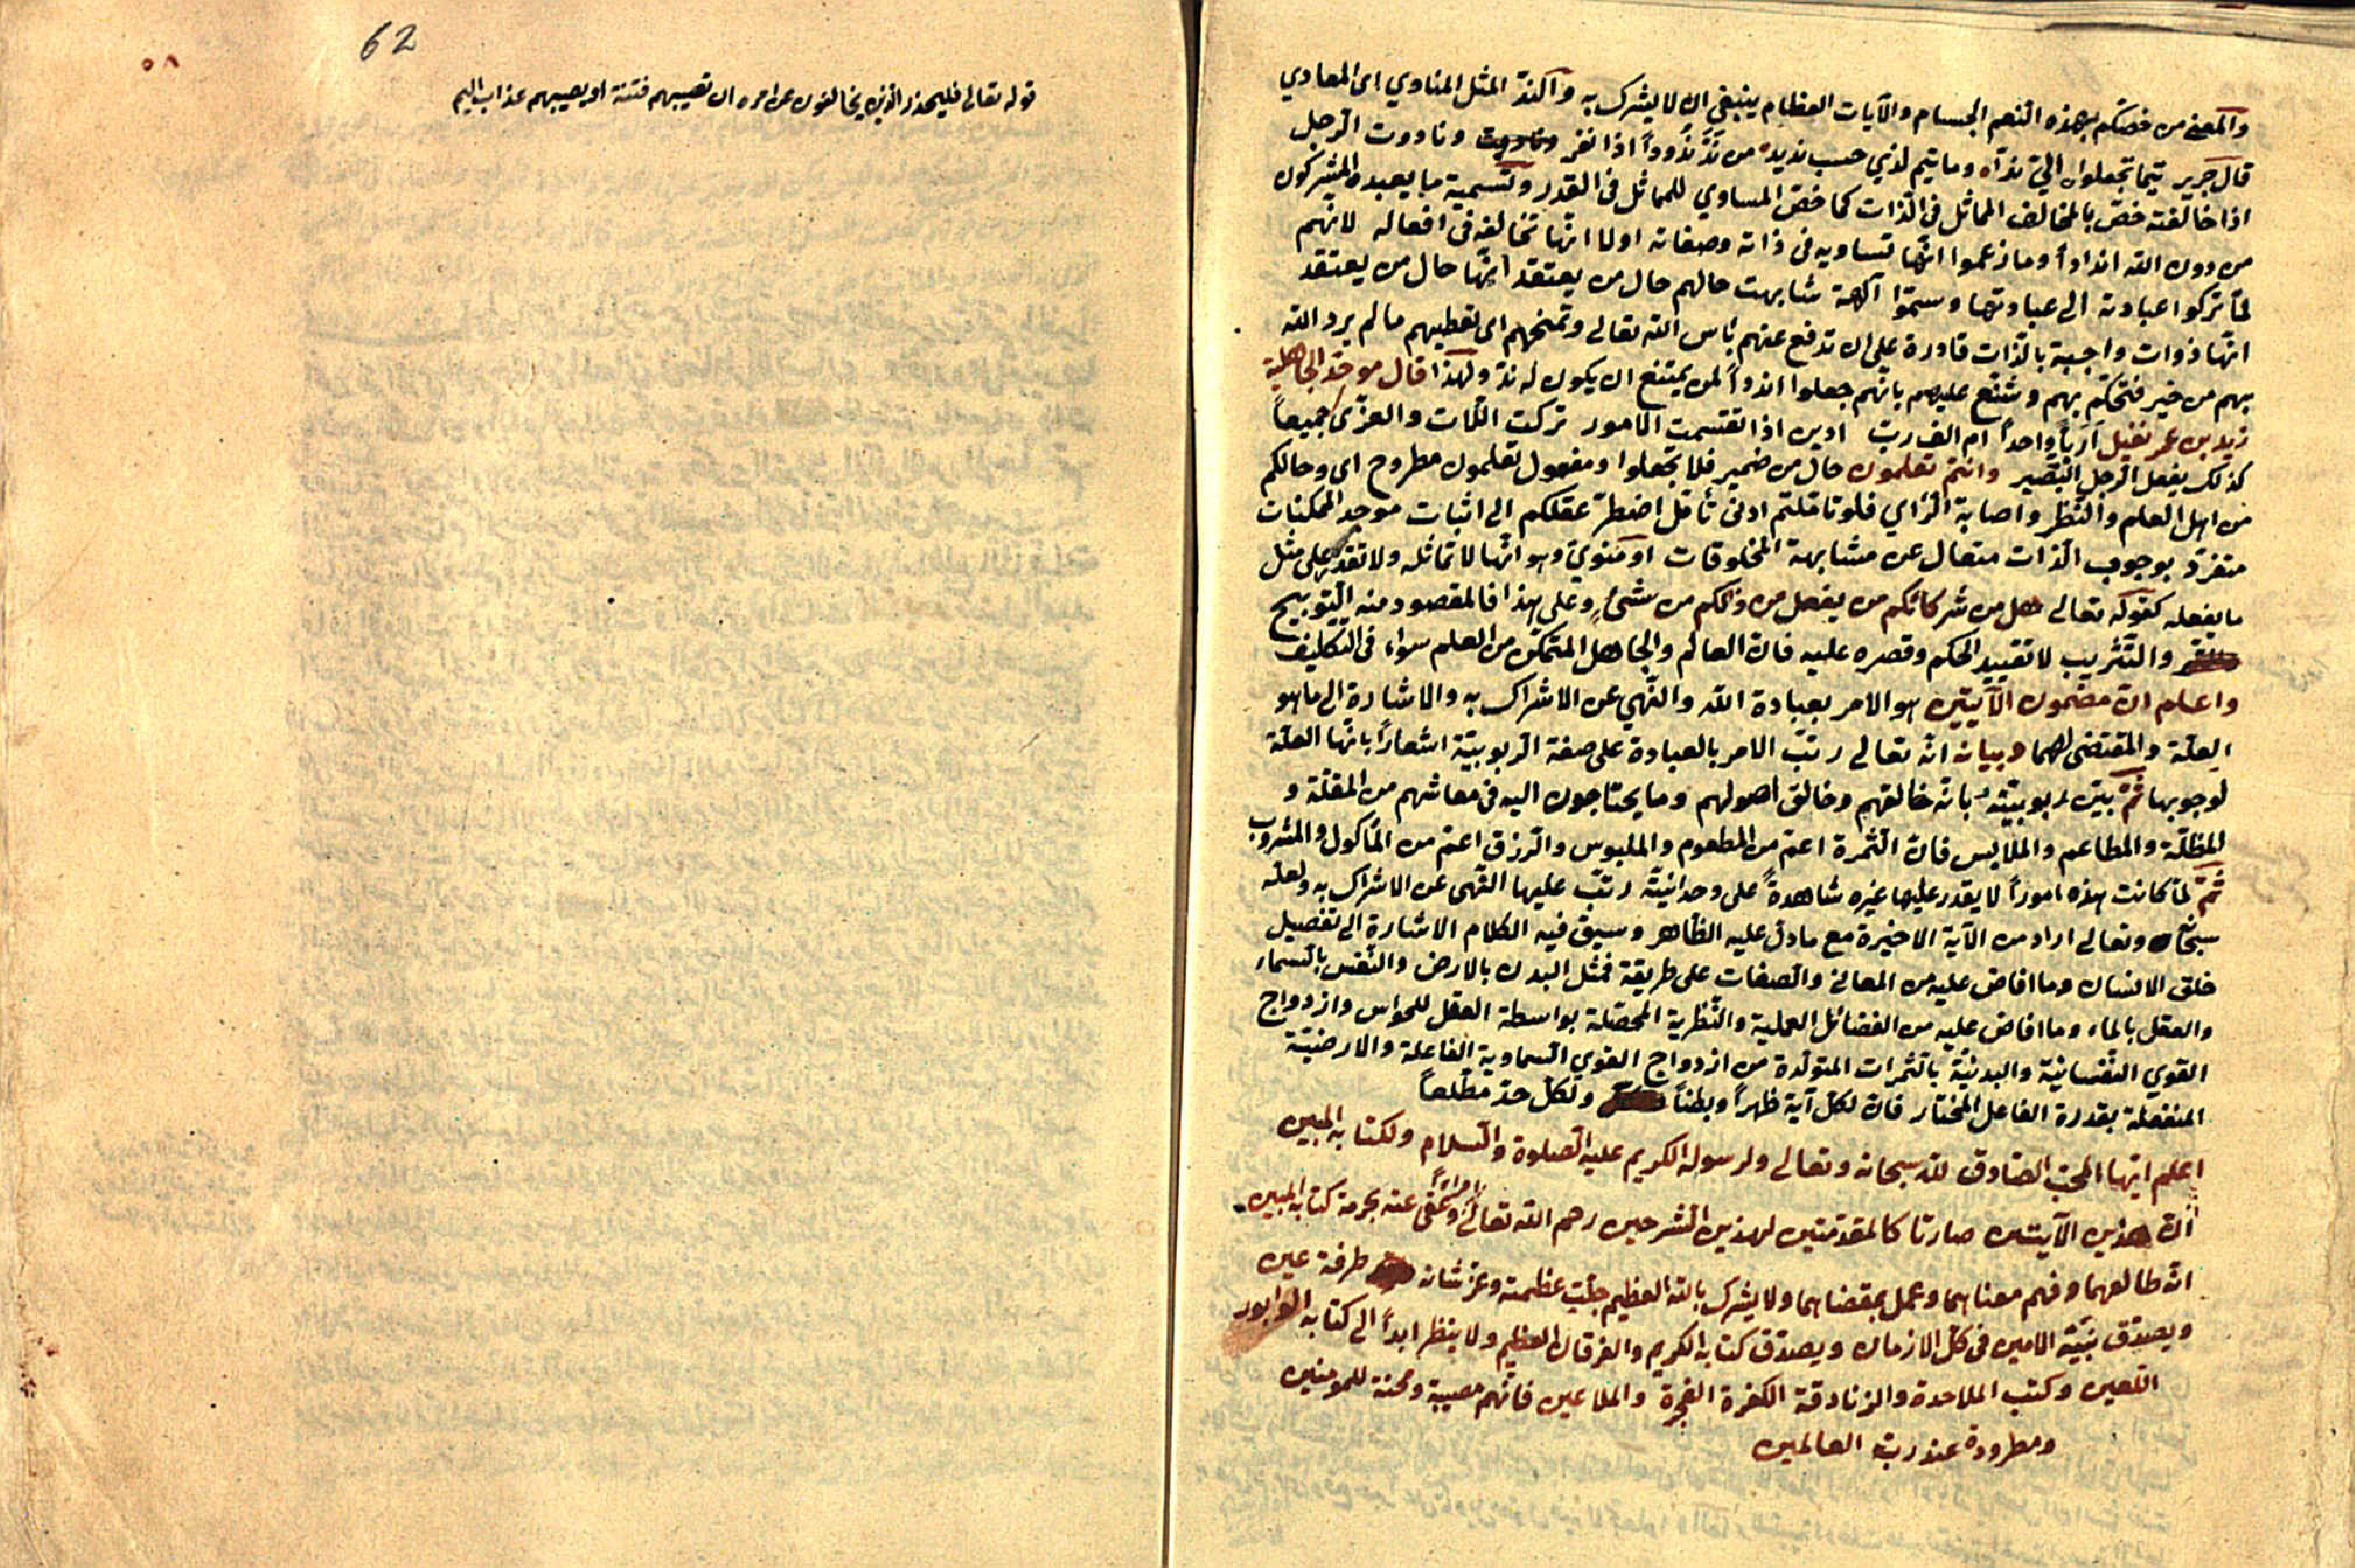 والمعنى من خصكم بهذه النعم الجسام والآيات العظام ينبغي ان لا يشرك به والند المثل المناوي اى المعادي
قال جرير تيما تجعلون اليّ ندا وما تيم لذي حسب نديد من ندّ ندودا اذا نفر وناددت الرجل
اذا خالفته خصّ بالمخالف المماثل فى الذات كما خصّ المساوي للمماثل فى القدر وتسمية ما يعبده المشركون
من دون الله اندادا وما زعموا انّها تساويه فى ذاته وصفاته ولا انّها تخالفه فى افعاله لانّهم
لمّا تركوا عبادته الى عبادتها وسمّوا آلهة شابهت حالهم حال من يعتقد انّها حال من يعتقد
انّها ذوات واجبة بالذات قادرة على ان تدفع عنهم بأس الله تعالى وتمنحهم اى تعطيهم ما لم يرد الله
بهم من خير فتهكّم بهم وشنّع عليهم بانّهم جعلوا اندادا لمن يمتنع ان يكون له ندّ ولهذا قال موحّد الجاهلية
زيد بن عمر نفيل أربّاً واحداً ام الف ربّ ادين اذا تقسمت الامور تركت اللات والعزّى جميعاً
كذلك يفعل الرجل البصير وانتم تعلمون حال من ضمير فلا تجعلوا ومفعول تعلمون مطروح اى وحالكم
من اهل العلم والنظر واصابة الرّاي فلو تأمّلتم ادنى تأمّل اضطرّ عقلكم الى اثبات موجد الممكنات
متفرّد بوجوب الذات متعال عن مشابهة المخلوقات او منويّ وهو انّها لا تماثله ولا تقدر على مثل
ما يفعله كقوله تعالى هل من شركائكم من يفعل من ذلكم من شئ وعلى هذا فالمقصود منه التّوبيخ
والتّثريب لا تقييد الحكم وقصره عليه فانّ العالم والجاهل المتمكّن من العلم سواء فى التكليف
واعلم انّ مضمون الآيتين هو الامر بعبادة الله والنّهي عن الاشراك به والاشارة الى ما هو
العلّة والمقتضى لهما وبيانه انّه تعالى رتّب الامر بالعبادة على صفة الربوبيّة اشعاراً بانّها العلّة
لوجوبها ثمّ بيّن ربوبيّته بانّه خالقهم وخالق اصولهم وما يحتاجون اليه فى معاشهم من المقلّة و
المظلّة والمطاعم والملابس فانّ الثمرة اعمّ من المطعوم والملبوس والرزق اعمّ من المأكول والمشروب
ثمّ لمّا كانت هذه اموراً لا يقدر عليها غيره شاهدةً على وحدانيّته رتّب عليها النّهى عن الاشراك به ولعلّه
سبحانه وتعالى اراد من الآية الاخيرة مع ما دلّ عليه الظّاهر وسيق فيه الكلام الاشارة الى تفصيل
خلق الانسان وما افاض عليه من المعانى والصفات على طريقة فمثل البدن بالارض والنفس بالسماء
والعقل بالماء وما افاض عليه من الفضائل العملية والنّظرية المحصّلة بواسطة العقل للحواس وازدواج
القوي النّفسانيّة والبدنيّة بالثّمرات المتولّدة من ازدواج القوي السّماوية الفاعلة والارضيّة
المنفعلة بقدرة الفاعل المختار فانّ لكلّ آية ظهراً وبطناً ولكلّ حدّ مطّلعاً
اعلم ايّها المحبّ الصّادق لله سبحانه وتعالى ولرسوله الكريم عليه الصلوة والسّلام ولكتابه المبين
انّ هذين الآيتين صارتا كالمقدّمتين لهذين الشرحين رحم الله تعالى وعفى عنه بحرمة كتابه المبين
انّه طالعهما وفهم معناهما وعمل بمقتضاهما ولا يشرك بالله العظيم جلّت عظمته وعزّ شانه طرفة عين
ويصدّق نبيّه الامين فى كلّ الازمان ويصدّق كتابه الكريم والفرقان العظيم ولا ينظر ابداً الى كتابه
اللعين وكتب الملاحدة والزنادقة الكفرة الفجرة والملاعين فانّهم مصيبة ومحنة للمومنين
ومطرودة عند ربّ العالمين
62
٥٨
قوله تعالى فليحذر الذين يخالفون عن امره ان تصيبهم فتنة او يصيبهم عذاب اليم